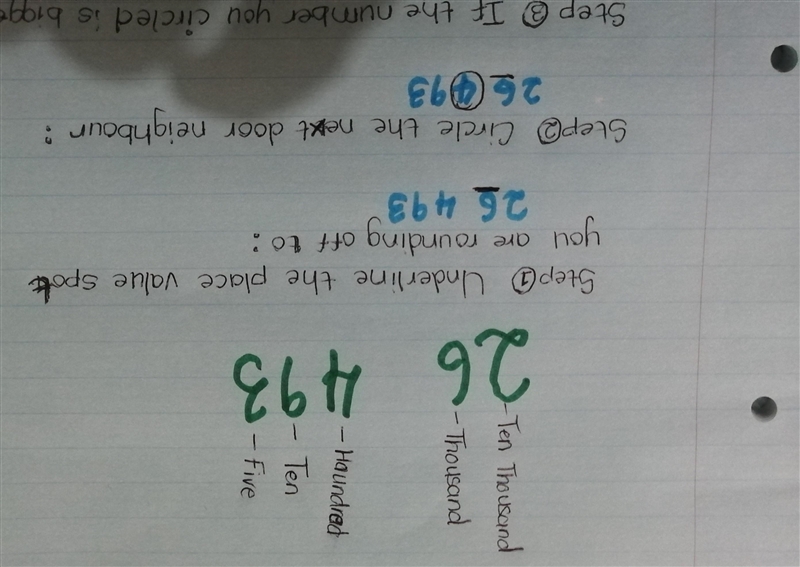 - Ten Thousand
- Thousand
- Haundred
- Ten
- Five
26 493
Step ① Underline the place value spot
you are rounding off to :
26 493
Step ② Circle the next door neighbour :
26 493
Step ③ If the number you circled is bigge